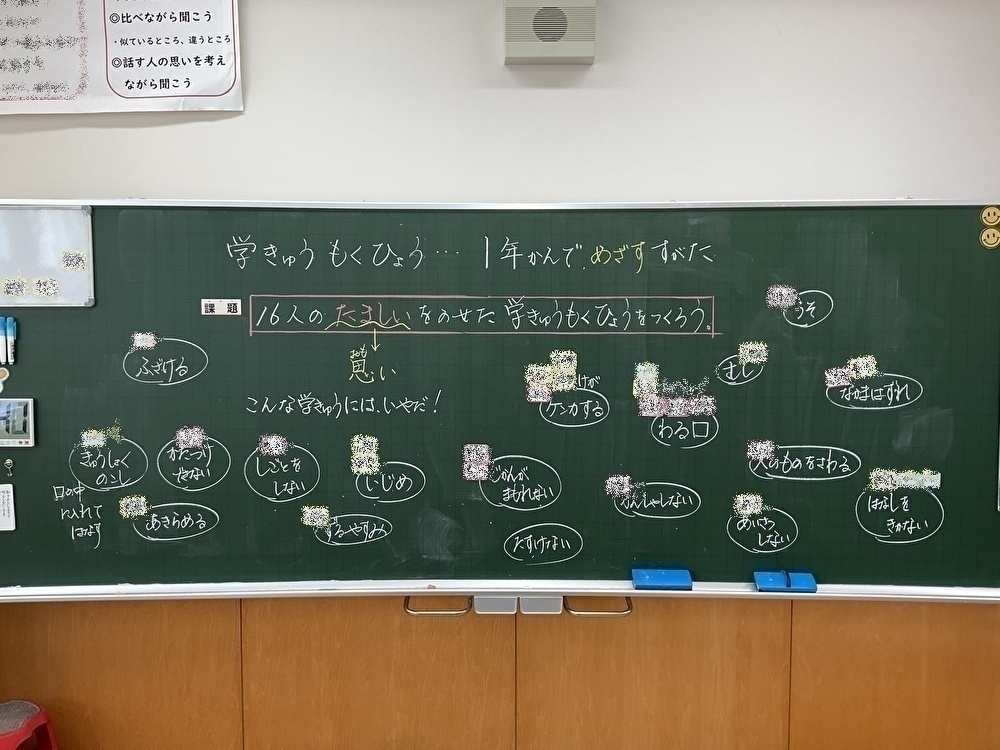 ◎比べながら聞こう
・似ているところ、違うところ
◎話す人の思いを考え
ながら聞こう
学きゅうもくひょう… 1年かんで、めざすすがた
課題
16人のたましいをのせた学きゅうもくひょうをつくろう。
おも
思い
こんな学きゅうには、いやだ!
うそ
ふざける
けが
ケンカする
わる口
むし
なかまはずれ
きゅうしょく
のこし
かたづけ
できない
しごとを
しない
いじめ
じかんが
まもれない
人のものをさわる
かんしゃしない
はなしを
きかない
口の中
に入れて
はなす
あきらめる
ずるやすみ
たすけない
あいさつ
しない